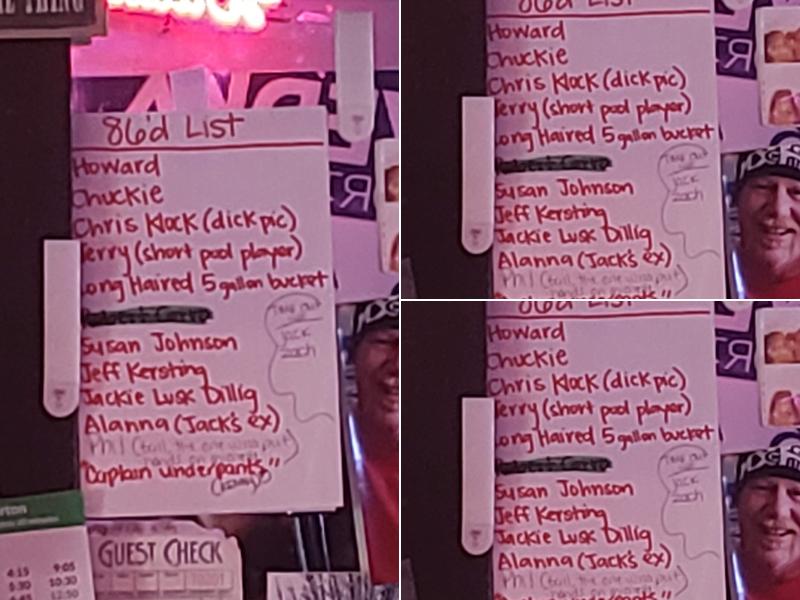 THING
86'd List
Howard
Chuckie
Chris Klock (dick pic)
Jerry (short pool player)
Long Haired 5 gallon bucket
Susan Johnson
Jeff Kersting
Jackie Lusk Dillig
Alanna (Jack's ex)
Phil (tall, the one who put
hands on
"Captain underpants"
Take out
Jack
Zach
GUEST CHECK
rton
4:15 9:05
5:30 10:30
6:45 12:50
86'd List
Howard
Chuckie
Chris Klock (dick pic)
Jerry (short pool player)
Long Haired 5 gallon bucket
Susan Johnson
Jeff Kersting
Jackie Lusk Dillig
Alanna (Jack's ex)
Phil (tall, the one who put
Take out
Jack
Zach
86'd List
Howard
Chuckie
Chris Klock (dick pic)
Jerry (short pool player)
Long Haired 5 gallon bucket
Susan Johnson
Jeff Kersting
Jackie Lusk Dillig
Alanna (Jack's ex)
Phil (tall, the one who put
Take out
Jack
Zach